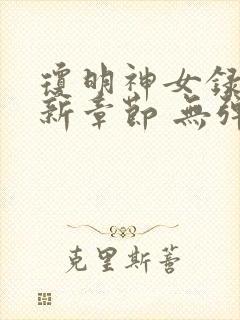 瓊明神女錄
新章節 無彈
克里斯蒼